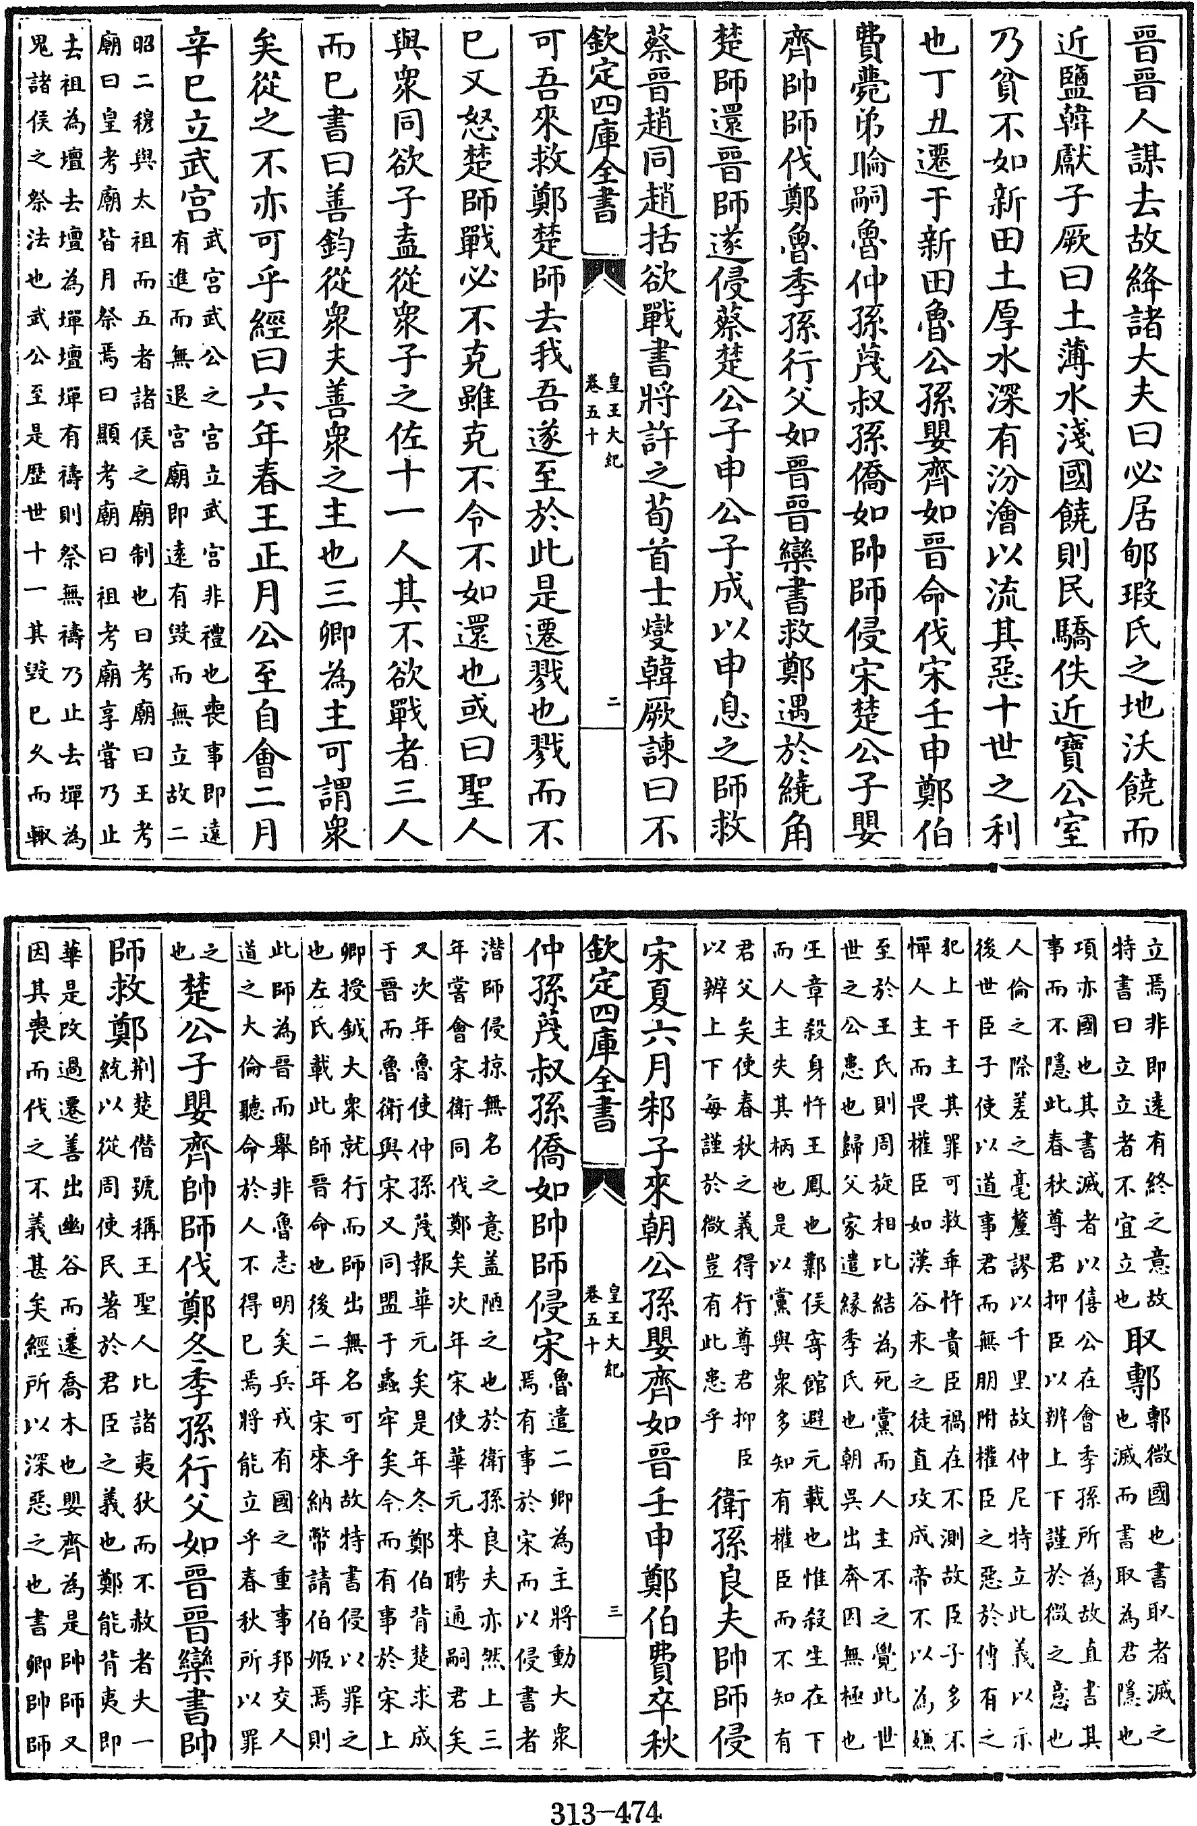 晉晉人謀去故絳諸大夫曰必居郇瑕氏之地沃饒而
近鹽韓獻子厥曰土薄水淺國饒則民驕佚近寶公室
乃貧不如新田土厚水深有汾澮以流其惡十世之利
也丁丑遷于新田魯公孫嬰齊如晉命伐宋壬申鄭伯
費薨弟睔嗣魯仲孫蔑叔孫僑如帥師侵宋楚公子嬰
齊帥師伐鄭魯季孫行父如晉晉欒書救鄭遇於繞角
楚師還晉師遂侵蔡楚公子申公子成以申息之師救
蔡晉趙同趙括欲戰書將許之荀首士燮韓厥諫曰不
欽定四庫全書
皇王大紀
卷五十
二
可吾來救鄭楚師去我吾遂至於此是遷戮也戮而不
已又怒楚師戰必不克雖克不令不如還也或曰聖人
與衆同欲子盍從衆子之佐十一人其不欲戰者三人
而已書曰善鈞從衆夫善衆之主也三卿為主可謂衆
矣從之不亦可乎經曰六年春王正月公至自會二月
辛巳立武宮
武宮武公之宮立武宮非禮也喪事即遠
有進而無退宮廟即遠有毀而無立故二
昭二穆與太祖而五者諸侯之廟制也曰考廟曰王考
廟曰皇考廟皆月祭焉曰顯考廟曰祖考廟享嘗乃止
去祖為壇去壇為墠壇墠有禱則祭無禱乃止去墠為
鬼諸侯之祭法也武公至是歴世十一其毀已久而輙
立焉非即逺有終之意故
特書曰立立者不宜立也
取鄟
鄟微國也書取者滅之
也滅而書取為君隱也
項亦國也其書滅者以僖公在會季孫所為故直書其
事而不隱此春秋尊君抑臣以辨上下謹於微之意也
人倫之際差之毫釐謬以千里故仲尼特立此義以示
後世臣子使以道事君而無朋附權臣之惡於傳有之
犯上干主其罪可救乖忤貴臣禍在不測故臣子多不
憚人主而畏權臣如漢谷永之徒直攻成帝不以為嫌
至於王氏則周旋相比結為死黨而人主不之覺此世
世之公患也歸父家遣縁季氏也朝吳出奔因無極也
王章殺身忤王鳳也鄴侯寄館避元載也惟殺生在下
而人主失其柄也是以黨與衆多知有權臣而不知有
君父矣使春秋之義得行尊君抑臣
以辨上下每謹於微豈有此患乎
衛孫良夫帥師侵
宋夏六月邾子來朝公孫嬰齊如晉壬申鄭伯費卒秋
欽定四庫全書
皇王大紀
卷五十
三
仲孫蔑叔孫僑如帥師侵宋
魯遣二卿為主將動大衆
焉有事於宋而以侵書者
潛師侵掠無名之意盖陋之也於衛孫良夫亦然上三
年嘗會宋衛同伐鄭矣次年宋使華元來聘通嗣君矣
又次年魯使仲孫蔑報華元矣是年冬鄭伯背楚求成
于晉而魯衛與宋又同盟于蟲牢矣今而有事於宋上
卿授鉞大衆就行而師出無名可乎故特書侵以罪之
也左氏載此師晉命也後二年宋來納幣請伯姬焉則
此師為晉而舉非魯志明矣兵戎有國之重事邦交人
道之大倫聽命於人不得已焉將能立乎春秋所以罪
之
也
楚公子嬰齊帥師伐鄭冬季孫行父如晉晉欒書帥
師救鄭
荆楚僭號稱王聖人比諸夷狄而不赦者大一
統以從周使民著於君臣之義也鄭能背夷即
華是改過遷善出幽谷而遷喬木也嬰齊為是帥師又
因其喪而伐之不義甚矣經所以深惡之也書卿帥師
313-474